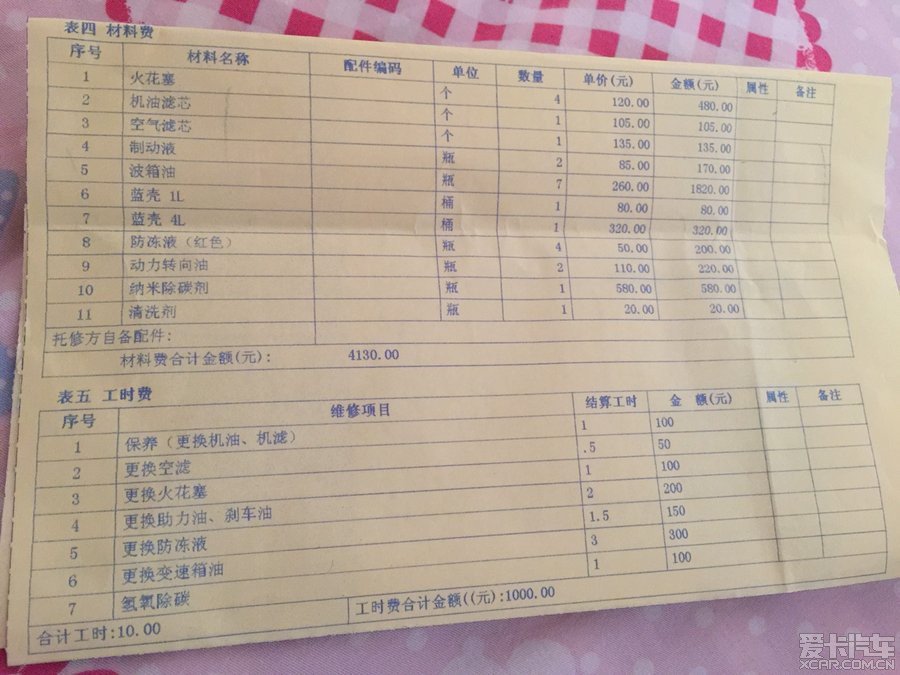 表四 材料费
序号 材料名称 配件编码 单位 数量 单价(元) 金额(元) 属性 备注
1 火花塞 个 4 120.00 480.00
2 机油滤芯 个 1 105.00 105.00
3 空气滤芯 个 1 135.00 135.00
4 制动液 瓶 2 85.00 170.00
5 波箱油 瓶 7 260.00 1820.00
6 蓝壳 1L 桶 1 80.00 80.00
7 蓝壳 4L 桶 1 320.00 320.00
8 防冻液(红色) 瓶 4 50.00 200.00
9 动力转向油 瓶 2 110.00 220.00
10 纳米除碳剂 瓶 1 580.00 580.00
11 清洗剂 瓶 1 20.00 20.00
托修方自备配件:
材料费合计金额(元): 4130.00
表五 工时费
序号 维修项目 结算工时 金 额(元) 属性 备注
1 保养(更换机油、机滤) 1 100
2 更换空滤 .5 50
3 更换火花塞 1 100
4 更换助力油、刹车油 2 200
5 更换防冻液 1.5 150
6 更换变速箱油 3 300
7 氢氧除碳 1 100
合计工时:10.00 工时费合计金额((元):1000.00
爱卡汽车
XCAR.COM.CN